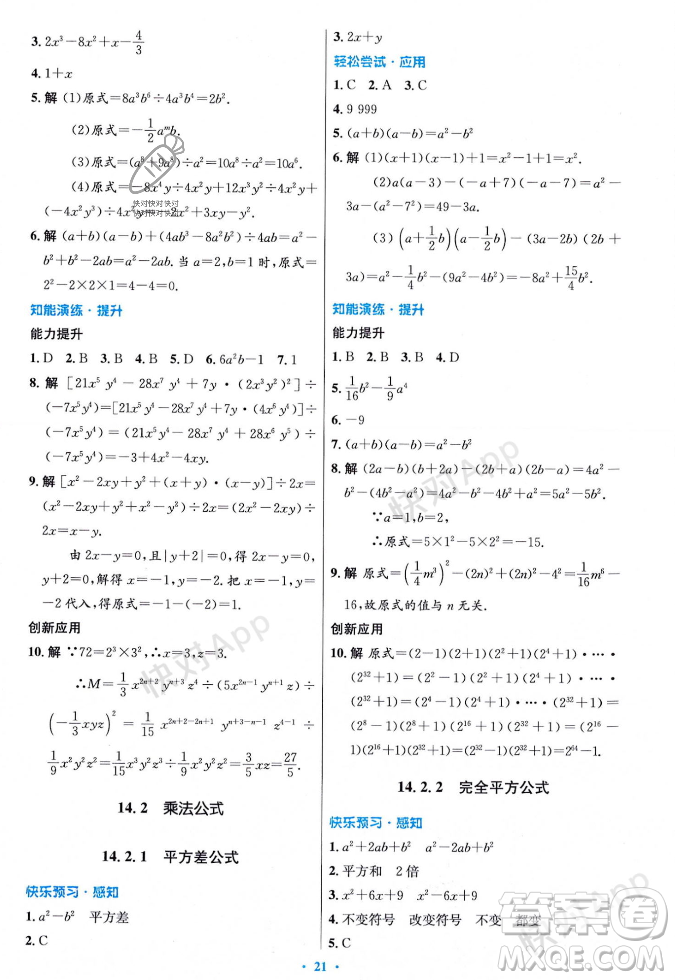 3. 2x³−8x²+x−4/3
4. 1+x
5. 解 (1)原式=8a³b⁶÷4a³b⁴=2b².
(2)原式=−1/2 aᵐb.
(3)原式=(a⁸+9a⁸)÷a²=10a⁸÷a²=10a⁶.
(4)原式=
(−4x²y)=2x²+3xy−y².
6. 解 (a+b)(a−b)+(4ab³−8a²b²)÷4ab=a²−
b²+b²−2ab=a²−2ab. 当 a=2,b=1 时,原式=
2²−2×2×1=4−4=0.
知能演练·提升
能力提升
1. D 2. B 3. B 4. A 5. B 6. 6a²b−1 7. 1
8. 解 [21x⁵y⁴−28x⁷y⁴+7y·(2x³y²)²]÷
(−7x⁵y⁴)=[21x⁵y⁴−28x⁷y⁴+7y·(4x⁶y⁴)]÷
(−7x⁵y⁴)=−3+4x²−4xy.
9. 解 [x²−2xy+y²+(x+y)·(x−y)]÷2x=
(x²−2xy+y²+x²−y²)÷2x=(2x²−2xy)÷2x=
x−y.
由 2x−y=0,且|y+2|=0,得 2x−y=0,
y+2=0,解得 x=−1,y=−2. 把 x=−1,y=
−2 代入,得原式=x−y=−1−(−2)=1.
创新应用
10. 解 ∵72=2³×3²,∴x=3,y=2.
∴M=1/3 x²ⁿ⁺²yⁿ⁺³z⁴÷(5x²ⁿ⁻¹yⁿ⁺¹z)÷
(−1/3 xyz)²=1/15 x²ⁿ⁺²⁻²ⁿ⁺¹ yⁿ⁺³⁻ⁿ⁻¹ z⁴⁻¹÷
1/9 x²y²z²=1/15 x³y²z³÷1/9 x²y²z²=3/5 xz=27/5.
14.2 乘法公式
14.2.1 平方差公式
快乐预习·感知
1. a²−b² 平方差
2. C
3. 2x+y
轻松尝试·应用
1. C 2. A 3. C
4. 9 999
5. (a+b)(a−b)=a²−b²
6. 解 (1)(x+1)(x−1)+1=x²−1+1=x².
(2)a(a−3)−(a−7)(a+7)=a²−3a−
(a²−7²)=49−3a.
(3)(a+1/2 b)(a−1/2 b)−(3a−2b)(2b+
3a)=a²−1/4 b²−(9a²−4b²)=−8a²+15/4 b².
知能演练·提升
能力提升
1. B 2. B 3. B 4. D
5. 1/16 b²−1/9 a⁴
6. −9
7. (a+b)(a−b)=a²−b²
8. 解 (2a−b)(b+2a)−(2b+a)(2b−a)=4a²−
b²−(4b²−a²)=4a²−b²−4b²+a²=5a²−5b².
∵a=1,b=2,
∴原式=5×1²−5×2²=−15.
9. 解 原式=(1/4 m³)²−(2n)²+(2n)²−4²=1/16 m⁶−
16,故原式的值与 n 无关.
创新应用
10. 解 原式=(2−1)(2+1)(2²+1)(2⁴+1)·…·
(2³²+1)=(2²−1)(2²+1)(2⁴+1)·…·
(2³²+1)=(2⁴−1)(2⁴+1)·…·(2³²+1)=
(2⁸−1)(2⁸+1)(2¹⁶+1)(2³²+1)=(2¹⁶−
1)(2¹⁶+1)(2³²+1)=(2³²−1)(2³²+1)=2⁶⁴−1.
14.2.2 完全平方公式
快乐预习·感知
1. a²+2ab+b² a²−2ab+b²
2. 平方和 2倍
3. x²+6x+9 x²−6x+9
4. 不变符号 改变符号 不变 都变
5. C
21
快对App
答案圈